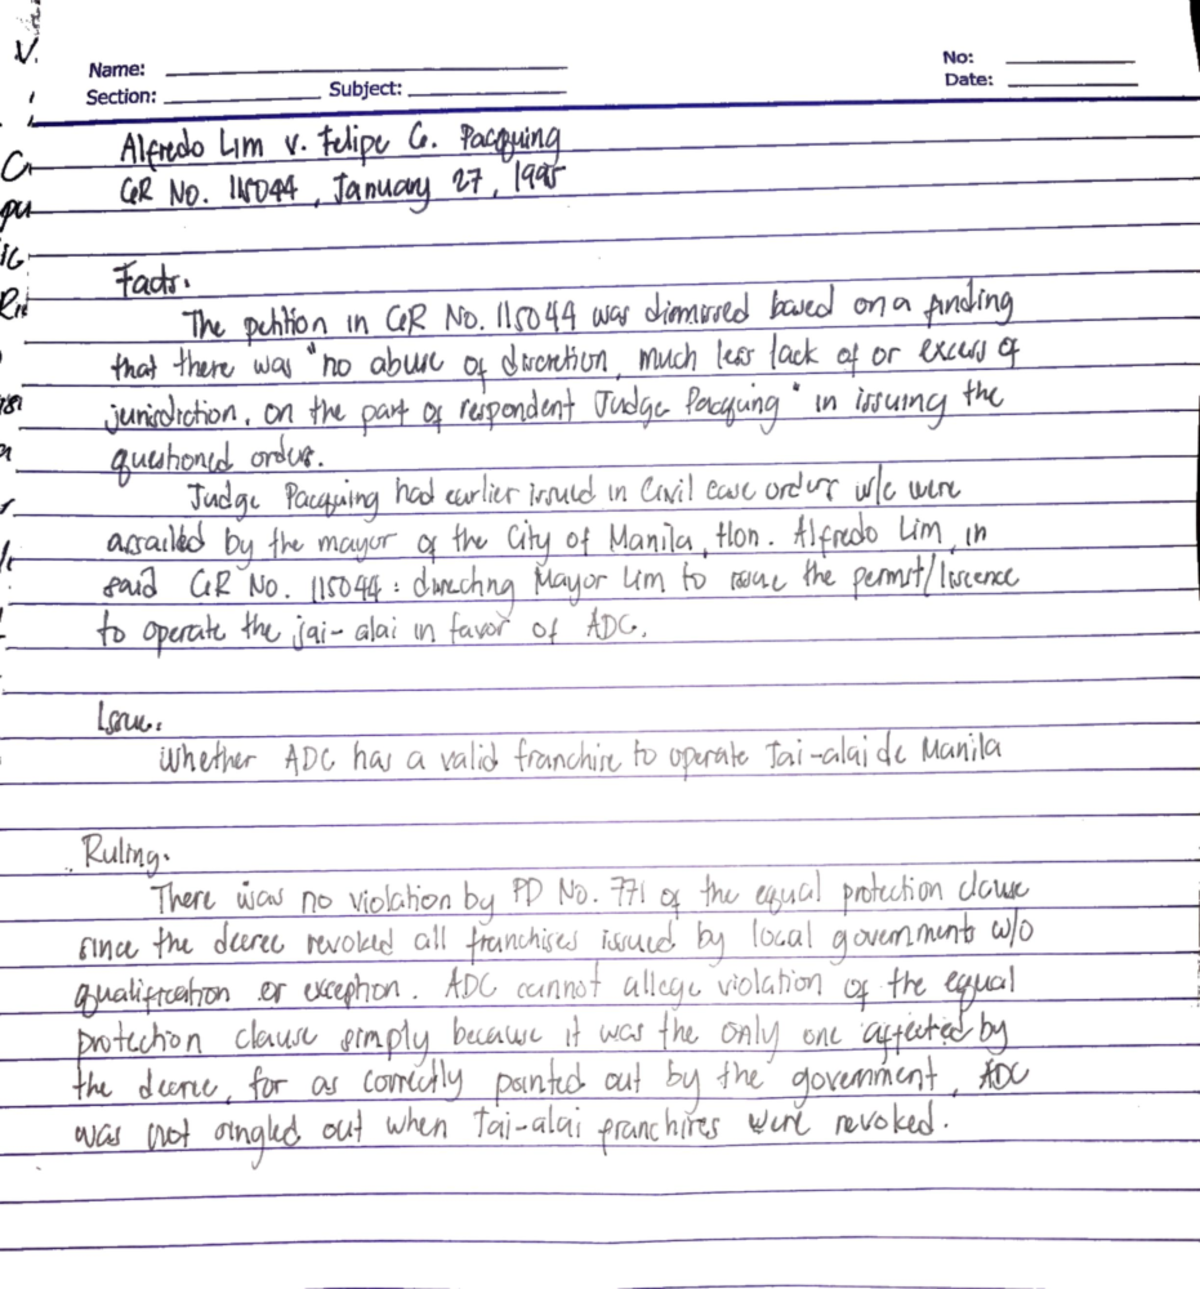 Name:
No:
Section:
Subject:
Date:
Alfredo Lim v. Felipe G. Pacquing
GR No. 115044, January 27, 1995
Facts.
The petition in GR No. 115044 was dismissed based on a finding
that there was "no abuse of discretion, much less lack of or excess of
jurisdiction, on the part of respondent Judge Pacquing" in issuing the
questioned orders.
Judge Pacquing had earlier issued in Civil case orders w/c were
assailed by the mayor of the City of Manila, Hon. Alfredo Lim, in
said GR No. 115044: directing Mayor Lim to issue the permit/liscence
to operate the jai-alai in favor of ADC.
Issue.
Whether ADC has a valid franchise to operate Jai-alai de Manila
Ruling.
There was no violation by PD No. 771 of the equal protection clause
since the decree revoked all franchises issued by local governments w/o
qualification or exception. ADC cannot allege violation of the equal
protection clause simply because it was the only one affected by
the decree, for as correctly pointed out by the government, ADC
was not singled out when Jai-alai franchises were revoked.